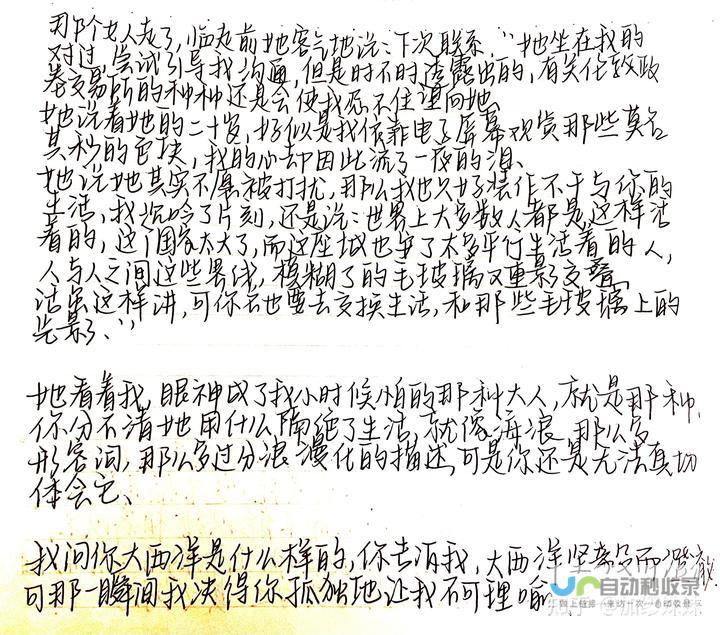 那个女人走了，临走前她客气地说：下次联系，“她坐在我的
对过，尝试引导我沟通，但是时不时透露出的，有关伦敦政
券交易所的种种还是会使我忍不住望向她
她说着她的二十岁，好似是我倚靠电子屏幕观赏那些莫名
其妙的色块，我的心却因此流了一夜的泪、
她说她其实不愿被打扰，那么我也只好装作不干与你的
生活，我沉吟了片刻，还是说：世界上大多数人都是这样活
着的，这个国家太大了，而这座城也孕了太多平行生活着的人，
人与人之间这些界线，模糊了的毛玻璃又重影交叠
话虽这样讲，可你不也要去交换生活，和那些毛玻璃上的
光影、”
她看着我，眼神成了我小时候怕的那种大人，就是那种，
你分不清她用什么隔绝了生活，就像海浪 那么多
形容词，那么多过分浪漫化的描述，可是你还是无法真切
体会它、
我问你大西洋是什么样的，你告诉我，大西洋坚毅而澄澈
可那一瞬间我决得你孤独地让我不可理喻
自动秒收录
网上链接-来访一次-自动收录
知乎